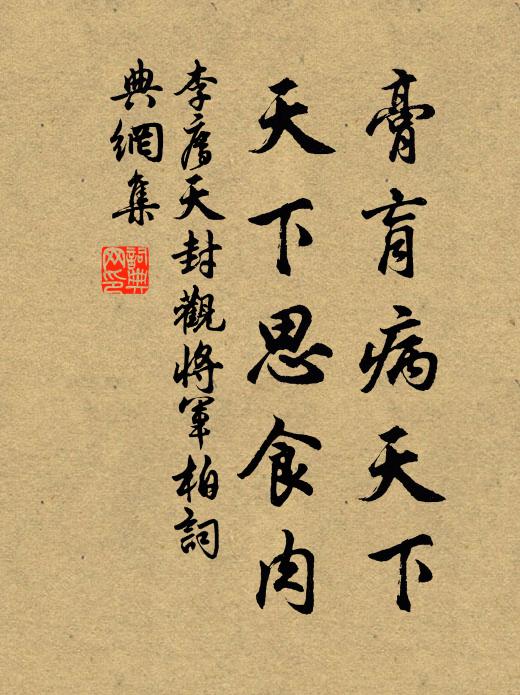 膏肓病天下
天下思食肉
李廌天封觀將軍柏詞
典網集
詞典
网印